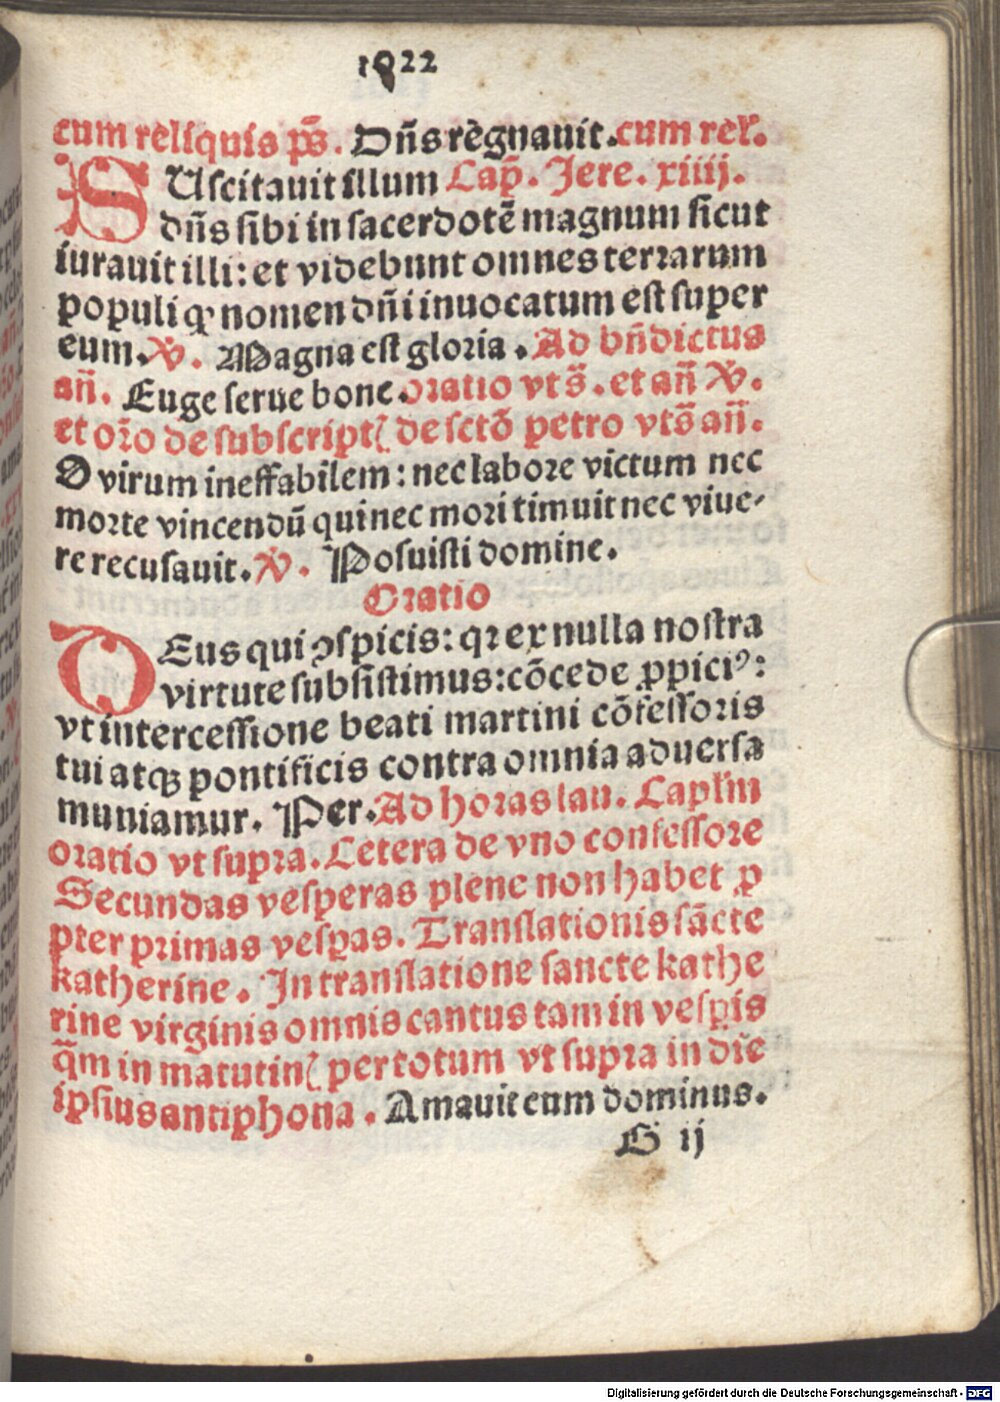 1922
cum reliquis ps̄. Dn̄s regnauit. cum rel'.
SUscitauit illum Cap̄. Jere. xiiij.
dn̄s sibi in sacerdotē magnum sicut
iurauit illi: et videbunt omnes terrarum
populi qꝛ nomen dn̄i inuocatum est super
eum. ꝟ. Magna est gloria. Ad bn̄dictus
an̄. Euge serue bone. oratio vts̄. et an̄ ꝟ.
et oro̅ de subscript( de sctō petro vts̄ an̄.
O virum ineffabilem: nec labore victum nec
morte vincendū qui nec mori timuit nec viue⸗
re recusauit. ꝟ. Posuisti domine.
Oratio
DEus qui ꝯspicis: qꝛ ex nulla nostra
virtute subsistimus: cōcede ꝓpiciꝰ:
vt intercessione beati martini cōfessoris
tui atqꝫ pontificis contra omnia aduersa
muniamur. Per. Ad horas lau. Capl'm
oratio vt supra. Cetera de vno confessore
Secundas vesperas plene non habet ꝓ
pter primas vesꝑas. Translationis sācte
katherine. In translatione sancte kathe
rine virginis omnis cantus tam in vesꝑis
q̄m in matutin( per totum vt supra in die
ipsius antiphona. Amauit eum dominus.
G ij
Digitalisierung gefördert durch die Deutsche Forschungsgemeinschaft - DFG